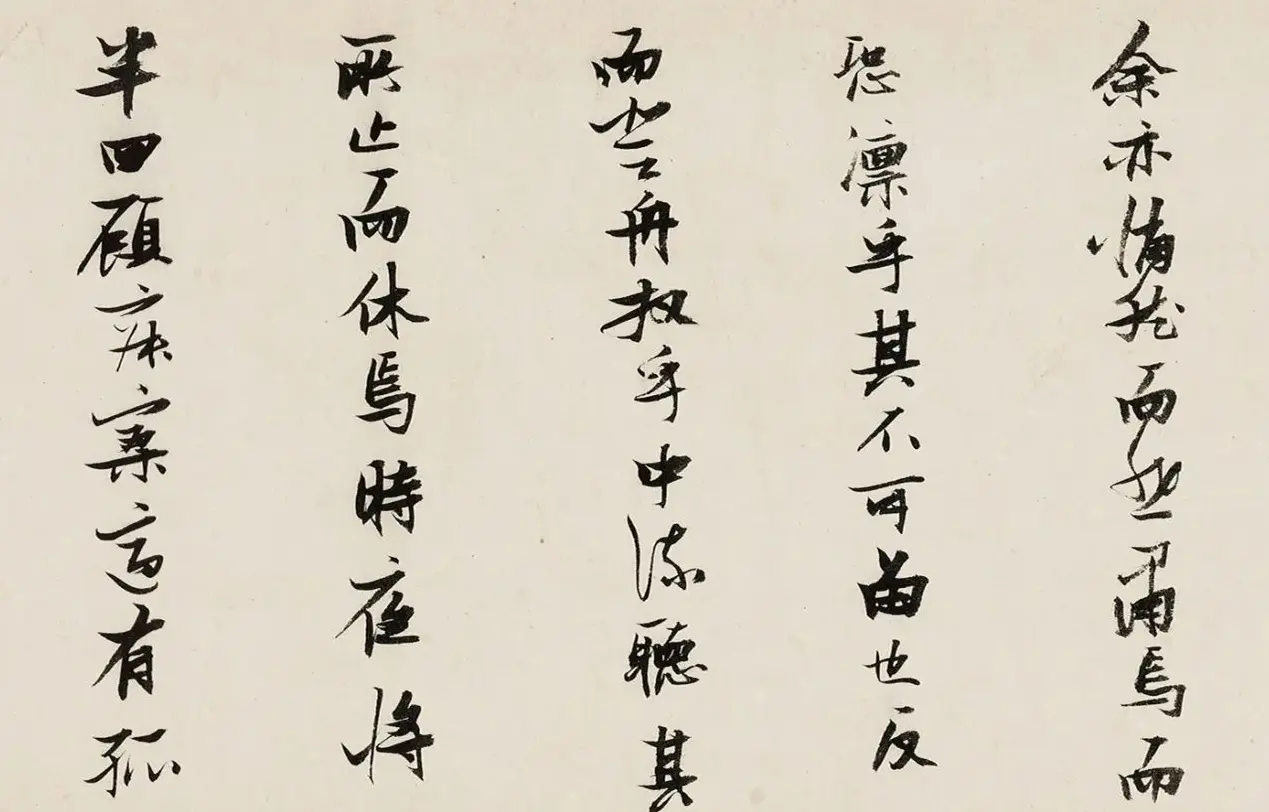 余亦悄然而悲肅焉而
恐凛乎其不可留也反
而登舟放乎中流聽其
所止而休焉時夜將
半四顧寂寥適有孤